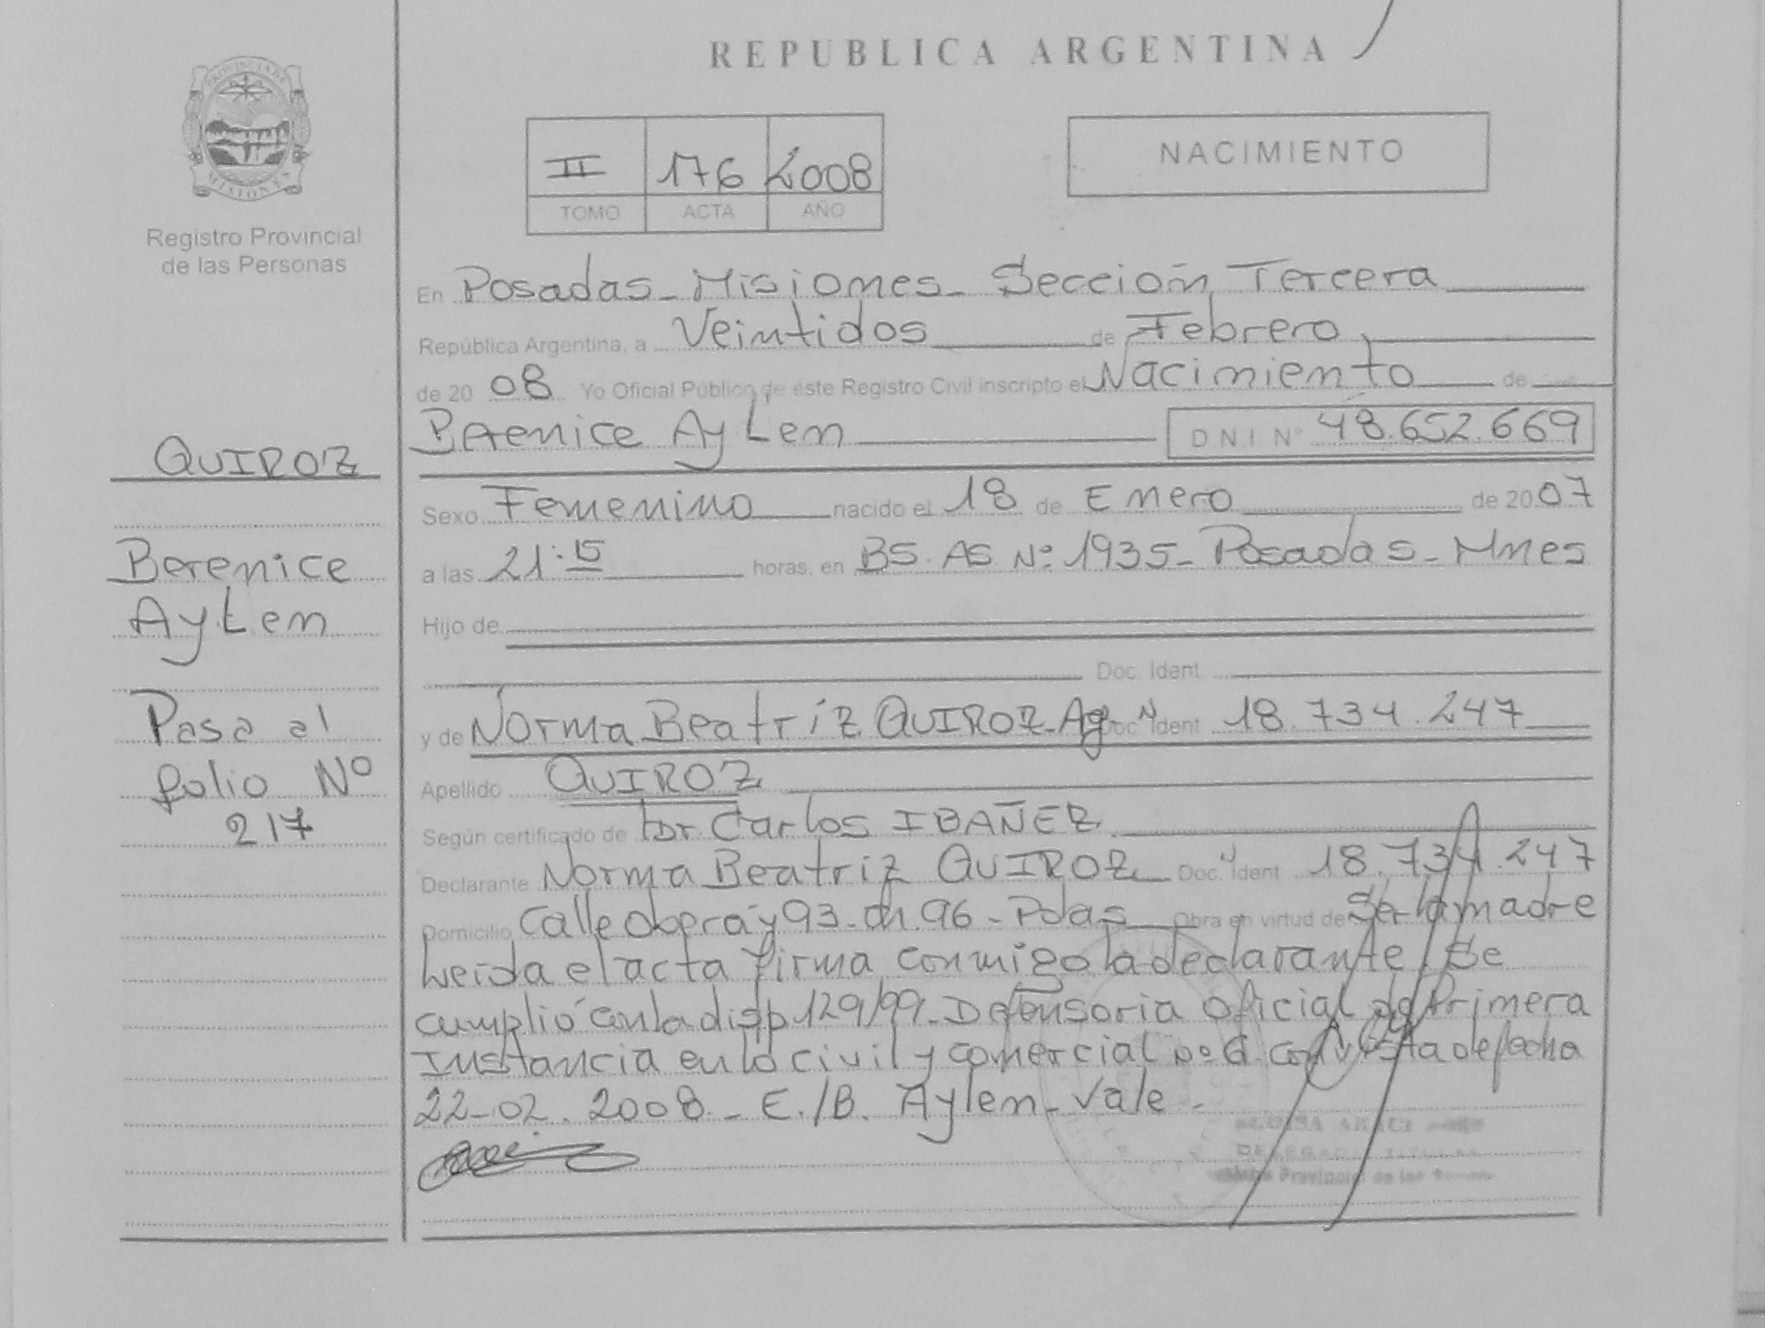 REPUBLICA ARGENTINA
PROVINCIA DE
MISIONES
Registro Provincial
de las Personas
II 176 2008
TOMO ACTA AÑO
NACIMIENTO
En Posadas - Misiones - Sección Tercera
República Argentina, a Veintidos de Febrero
de 20 08 Yo Oficial Público de éste Registro Civil inscripto el Nacimiento de
Berenice Aylen D N I N° 48.652.669
Sexo Femenino nacido el 18 de Enero de 20 07
a las 21:15 horas, en BS. AS. N° 1935 - Posadas - Mnes
Hijo de
Doc. Ident.
y de Norma Beatriz QUIROZ - Ag N Doc. Ident 18.734.247
Apellido QUIROZ
Según certificado de Dr Carlos IBAÑEZ
Declarante Norma Beatriz QUIROZ Doc. Ident 18.734.247
Domicilio Calle Obera y 93 - Ch. 96 - Pdas Obra en virtud de Ser la madre
Leida el acta firma conmigo la declarante. Se
cumplió con la disp 129/99 - Defensoria Oficial de Primera
Instancia en lo civil y comercial N° 6 con vista de fecha
22-02-2008 - E./B. Aylen - Vale -
QUIROZ
Berenice
Aylen
Pasa al
folio N°
217